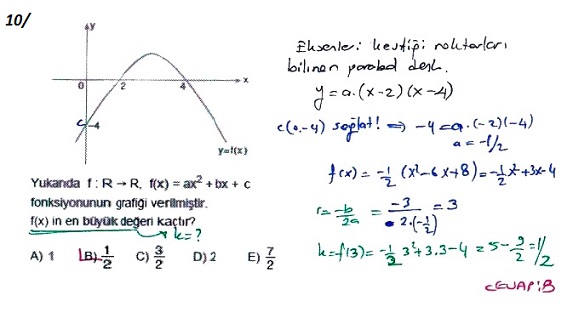 10/
y
0 2 4 x
c -4
y=f(x)
Yukanda f : R → R, f(x) = ax² + bx + c
fonksiyonunun grafiği verilmiştir.
f(x) in en büyük değeri kaçtır?
k=?
A) 1 B) 1/2 C) 3/2 D) 2 E) 7/2
Eksenleri kestiği noktaları
bilinen parabol denk.
y = a.(x-2)(x-4)
c(0,-4) sağlat! ⇒ -4 = a.(-2)(-4)
a = -1/2
f(x) = -1/2 (x²-6x+8) = -1/2x²+3x-4
r = -b/2a = -3/2.(-1/2) = 3
k = f(3) = -1/2 3²+3.3-4 = 5-9/2 = 1/2
CEVAP: B